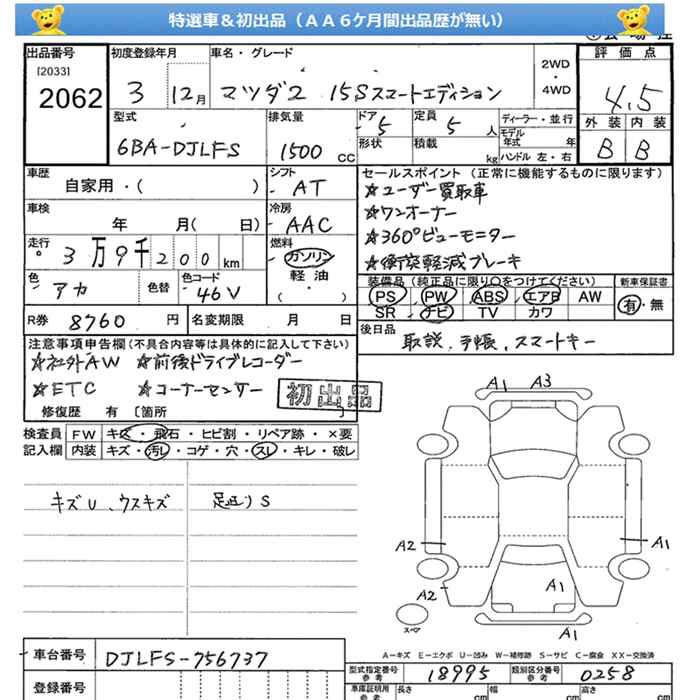 特選車＆初出品（ＡＡ６ケ月間出品歴が無い）
出品番号 初度登録年月 車名・グレード 評価点
[2033] 2WD・4WD
2062 3 12月 マツダ2 15Sスマートエディション 4.5
型式 排気量 ドア 5 定員 5 人 ディーラー・並行 外装 内装
6BA-DJLFS 1500 CC 形状 積載 kg モデル年式 年 B B
ハンドル 左・右
車歴 シフト セールスポイント（正常に機能するものに限ります）
自家用・( ) AT ☆ユーザー買取車
車検 冷房 ☆ワンオーナー
年 月( 日) AAC ☆360°ビューモニター
走行 燃料 ☆衝突軽減ブレーキ
3万9千200km ガソリン
軽油
(・)
装備品（純正品に限り○をつけてください） 新車保証書
色 アカ 色替 色コード 46V PS PW ABS エアB AW 有・無
SR ナビ TV カワ
R券 8760 円 名変期限 月 日 後日品
取説、手帳、スマートキー
注意事項申告欄(不具合内容等は具体的に記入して下さい)
☆社外AW ☆前後ドライブレコーダー
☆ETC ☆コーナーセンサー 初出品
修復歴 有〔箇所 〕
A1 A3
検査員 FW キズ・飛石・ヒビ割・リペア跡・×要
記入欄 内装 キズ・汚レ・コゲ・穴・スレ・キレ・破レ
キズU、ウスキズ 足廻りS
A2 A1
A2 A1
スペア A1
A-キズ E-エクボ U-凹み W-補修跡 S-サビ C-腐食 XX-交換済
車台番号 DJLFS-756737
型式指定番号参考 18995 類別区分番号参考 0258
登録番号
車庫証明用参考 長さ cm 幅 cm 高さ cm